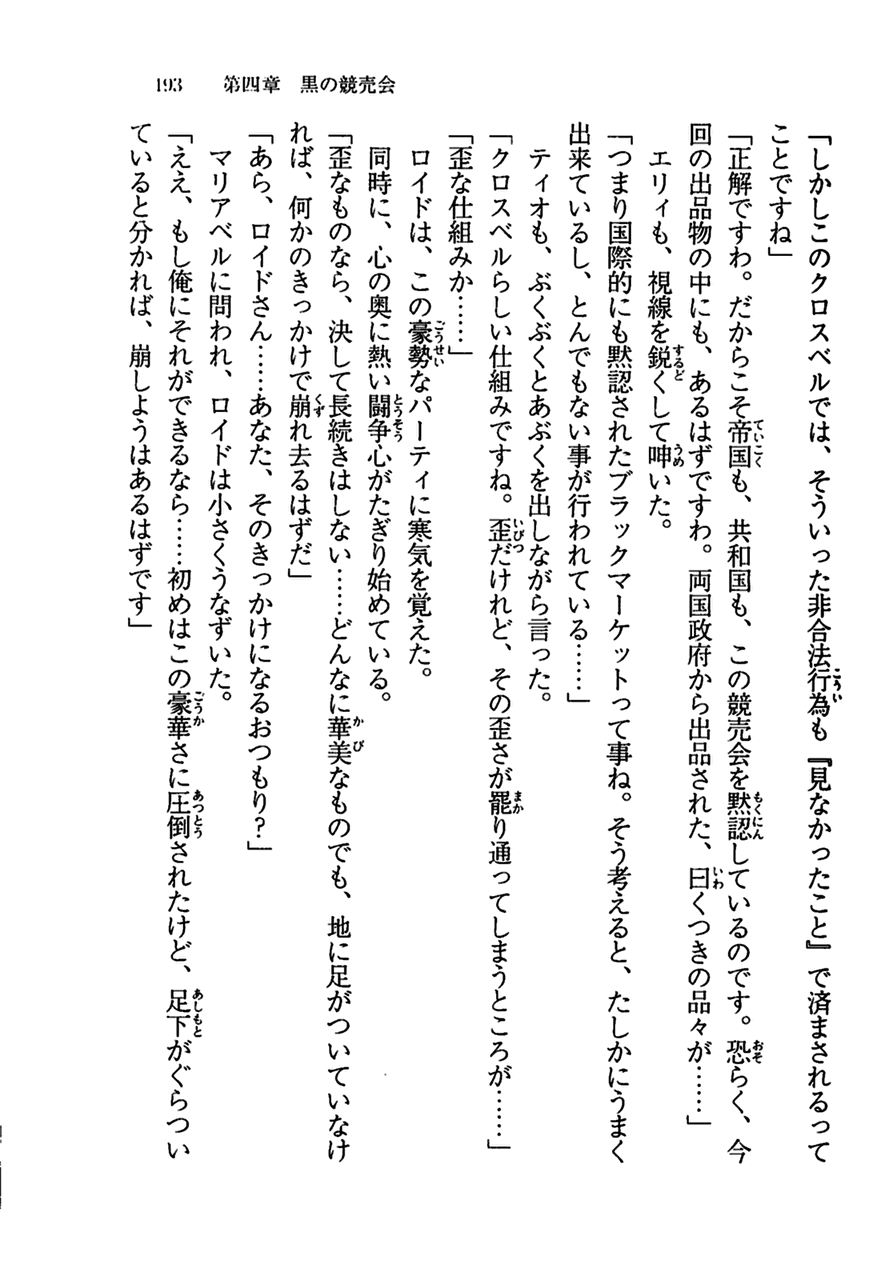 193　第四章　黒の競売会
「しかしこのクロスベルでは、そういった非合法行為も『見なかったこと』で済まされるって
ことですね」
「正解ですわ。だからこそ帝国も、共和国も、この競売会を黙認しているのです。恐らく、今
回の出品物の中にも、あるはずですわ。両国政府から出品された、曰くつきの品々が……」
　エリィも、視線を鋭くして呻いた。
「つまり国際的にも黙認されたブラックマーケットって事ね。そう考えると、たしかにうまく
出来ているし、とんでもない事が行われている……」
　ティオも、ぶくぶくとあぶくを出しながら言った。
「クロスベルらしい仕組みですね。歪だけれど、その歪さが罷り通ってしまうところが……」
「歪な仕組みか……」
　ロイドは、この豪勢なパーティに寒気を覚えた。
　同時に、心の奥に熱い闘争心がたぎり始めている。
「歪なものなら、決して長続きはしない……どんなに華美なものでも、地に足がついていなけ
れば、何かのきっかけで崩れ去るはずだ」
「あら、ロイドさん……あなた、そのきっかけになるおつもり？」
　マリアベルに問われ、ロイドは小さくうなずいた。
「ええ、もし俺にそれができるなら……初めはこの豪華さに圧倒されたけど、足下がぐらつい
ていると分かれば、崩しようはあるはずです」